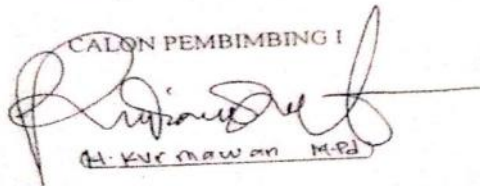 CALON PEMBIMBING I
H. Kurnawan M.Pd